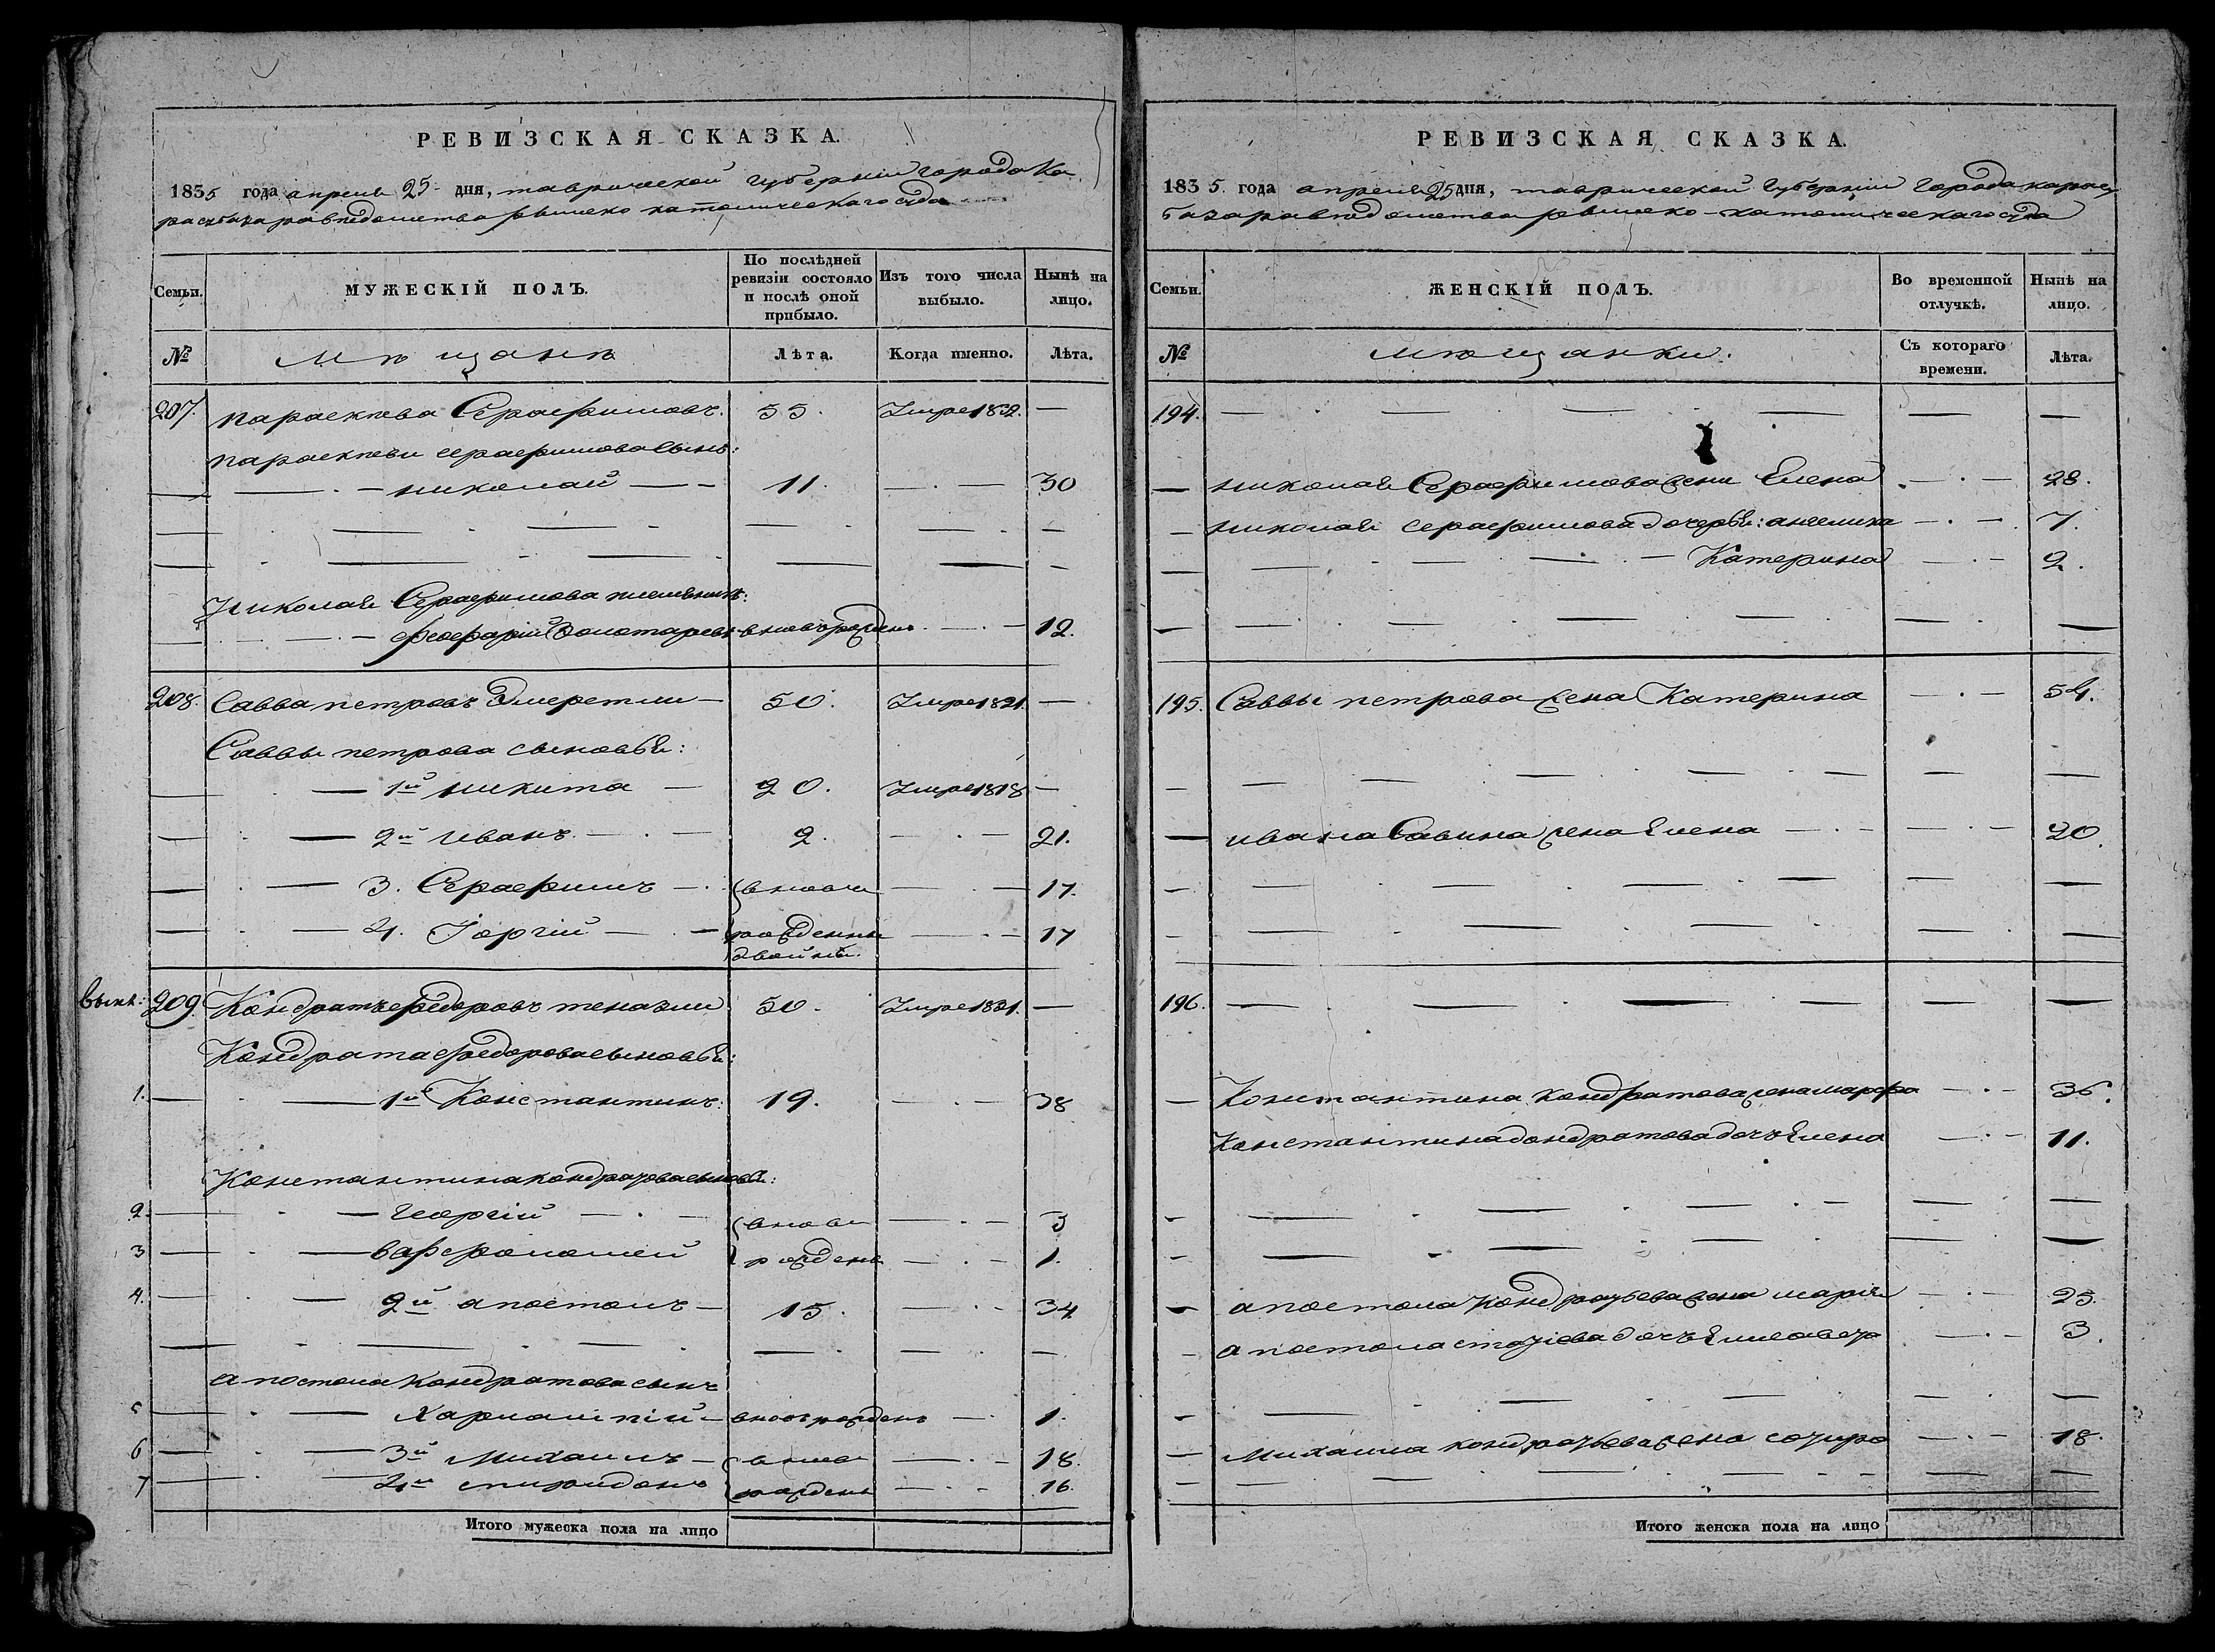 РЕВИЗСКАЯ СКАЗКА.
1835 года апреля 25 дня, таврической губерніи города Ка
расубазара ведомства римско католическаго суда
Семьи.
МУЖЕСКІЙ ПОЛЪ.
По послѣдней ревизіи состояло и послѣ оной прибыло.
Изъ того числа выбыло.
Нынѣ на лицо.
№
мѣщанѣ
Лѣта.
Когда именно.
Лѣта.
207. параскева Серафимовъ. 55. Умре 1832. —
параскеви серафимова сынъ:
— николай — 11. — 30
Николая Серафимова племянникъ:
— Золотаревъ вновь рожденъ — 12.
208. Савва петровъ Эмеретли — 50. Умре 1821. —
Саввы петрова сыновья:
— 1й никита — 20. Умре 1818 —
— 2й иванъ. — 2. — 21.
— 3. Серафимъ — вновь — 17.
— 4. Іоргій — рожденны — 17
двойни.
Вык: 209. Кондратъ федоровъ 50. Умре 1831. —
Кондрата федорова сыновья:
1. — 1й Константинъ: 19. — 38
Константина кондратова сыновья:
2. — георгій — вновь — 3
3 — варфоломей рожденъ — 1.
4. — 2й апостолъ — 15. — 34
апостола кондратова сынъ
5 — Харлампій — вновь рожденъ — 1.
6 — 3й Михаилъ — вновь — 18.
7 — 4й спиридонъ рожденъ — 16.
Итого мужеска пола на лицо
РЕВИЗСКАЯ СКАЗКА.
1835. года апреля 25 дня, таврической губерніи города карасу
базара ведомства римско-католическаго суда
Семьи.
ЖЕНСКІЙ ПОЛЪ.
Во временной отлучкѣ.
Нынѣ на лицо.
№
мѣщанки.
Съ котораго времени.
Лѣта.
194. — — —
— николая Серафимова жена Елена — 28.
— николая серафимова дочерья: ангелика — 7.
— Катерина — 2.
195. Саввы петрова жена Катерина — 54.
— ивана Савина жена Елена — 20.
196. — — —
— Константина кондратова жена марфа — 36.
Константина кондратова дочъ Елена — 11.
— апостола кондратьева жена марія — 25.
— апостола дочъ Елисавета — 3.
— Михаила кондратьева жена — 18.
Итого женска пола на лицо